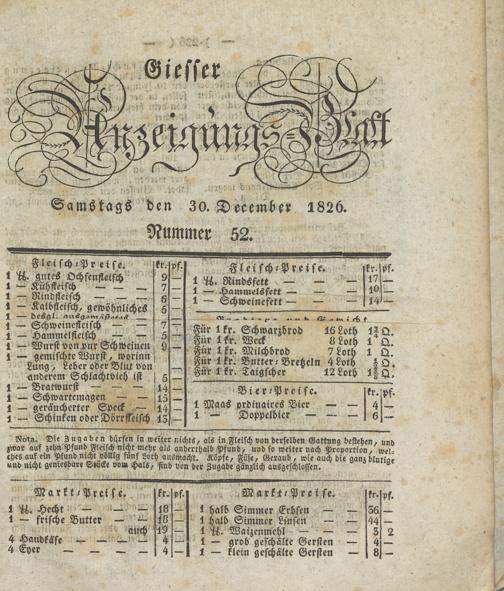 Giesser
Anzeigungs-Blatt
Samstags den 30. December 1826.
Nummer 52.
Fleisch-Preise. kr. pf.
1 ℔. gutes Ochsenfleisch 9 —
1 — Kuhfleisch — 7 —
1 — Rindfleisch — 6 —
1 — Kalbfleisch, gewöhnliches 5 —
1 — desgl. ausgemästetes
1 — Schweinefleisch — 7 —
1 — Hammelfleisch — 5 —
1 — Wurst von pur Schweinen 9 —
1 — gemischte Wurst, worinn
Lung, Leber oder Blut von
anderem Schlachtvieh ist 5 —
1 — Bratwurst — — 14 —
1 — Schwartemagen — 15 —
1 — geräucherter Speck — 14 —
1 — Schinken oder Dörrfleisch 15 —
Fleisch-Preise. kr. pf.
1 ℔. Rindsfett — — 17 —
1 — Hammelsfett — — 10 —
1 — Schweinefett — — 14 —
Für 1 kr. Schwarzbrod 16 Loth
Für 1 kr. Weck 8 Loth
Für 1 kr. Milchbrod 7 Loth
Für 1 kr. Butter-Bretzeln 4 Loth
Für 1 kr. Taigscher 12 Loth
Bier-Preise. kr. pf.
1 Maas ordinaires Bier — 4 —
1 — Doppelbier — — 6 —
Nota. Die Zugaben dürfen in weiter nichts, als in Fleisch von derselben Gattung bestehen, und
zwar auf zehn Pfund Fleisch nicht mehr als anderthalb Pfund, und so weiter nach Proportion, wel-
ches auf ein Pfund nicht völlig fünf Loth ausmacht. Köpfe, Füse, Geraud, wie auch die ganz blutige
und nicht geniesbare Stücke vom Hals, sind von der Zugabe gänzlich ausgeschlossen.
Markt-Preise. kr. pf.
1 ℔. Hecht — — 18 —
1 — frische Butter — — 18 —
auch 19 —
4 Handkäse — — 4 —
4 Eyer — — — 4 —
Markt-Preise. kr. pf.
1 halb Simmer Erbsen 36 —
1 halb Simmer Linsen 44 —
1 ℔. Waizenmehl — — 3 2
1 — grob geschälte Gersten — 4 —
1 — klein geschälte Gersten — 8 —